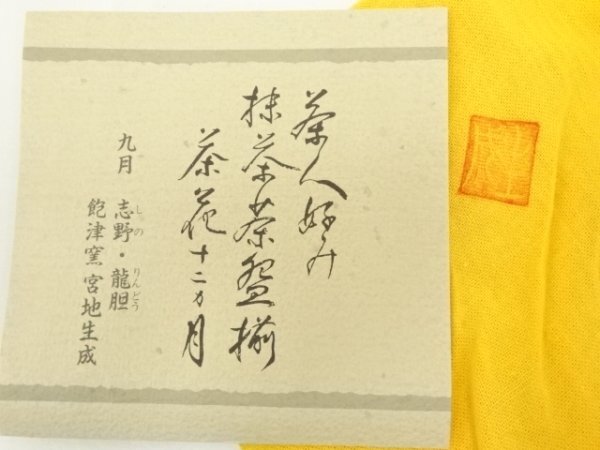 茶人好み
抹茶茶盌揃
茶花十二カ月
九月
志野・龍胆
しの
りんどう
飽津窯 宮地生成